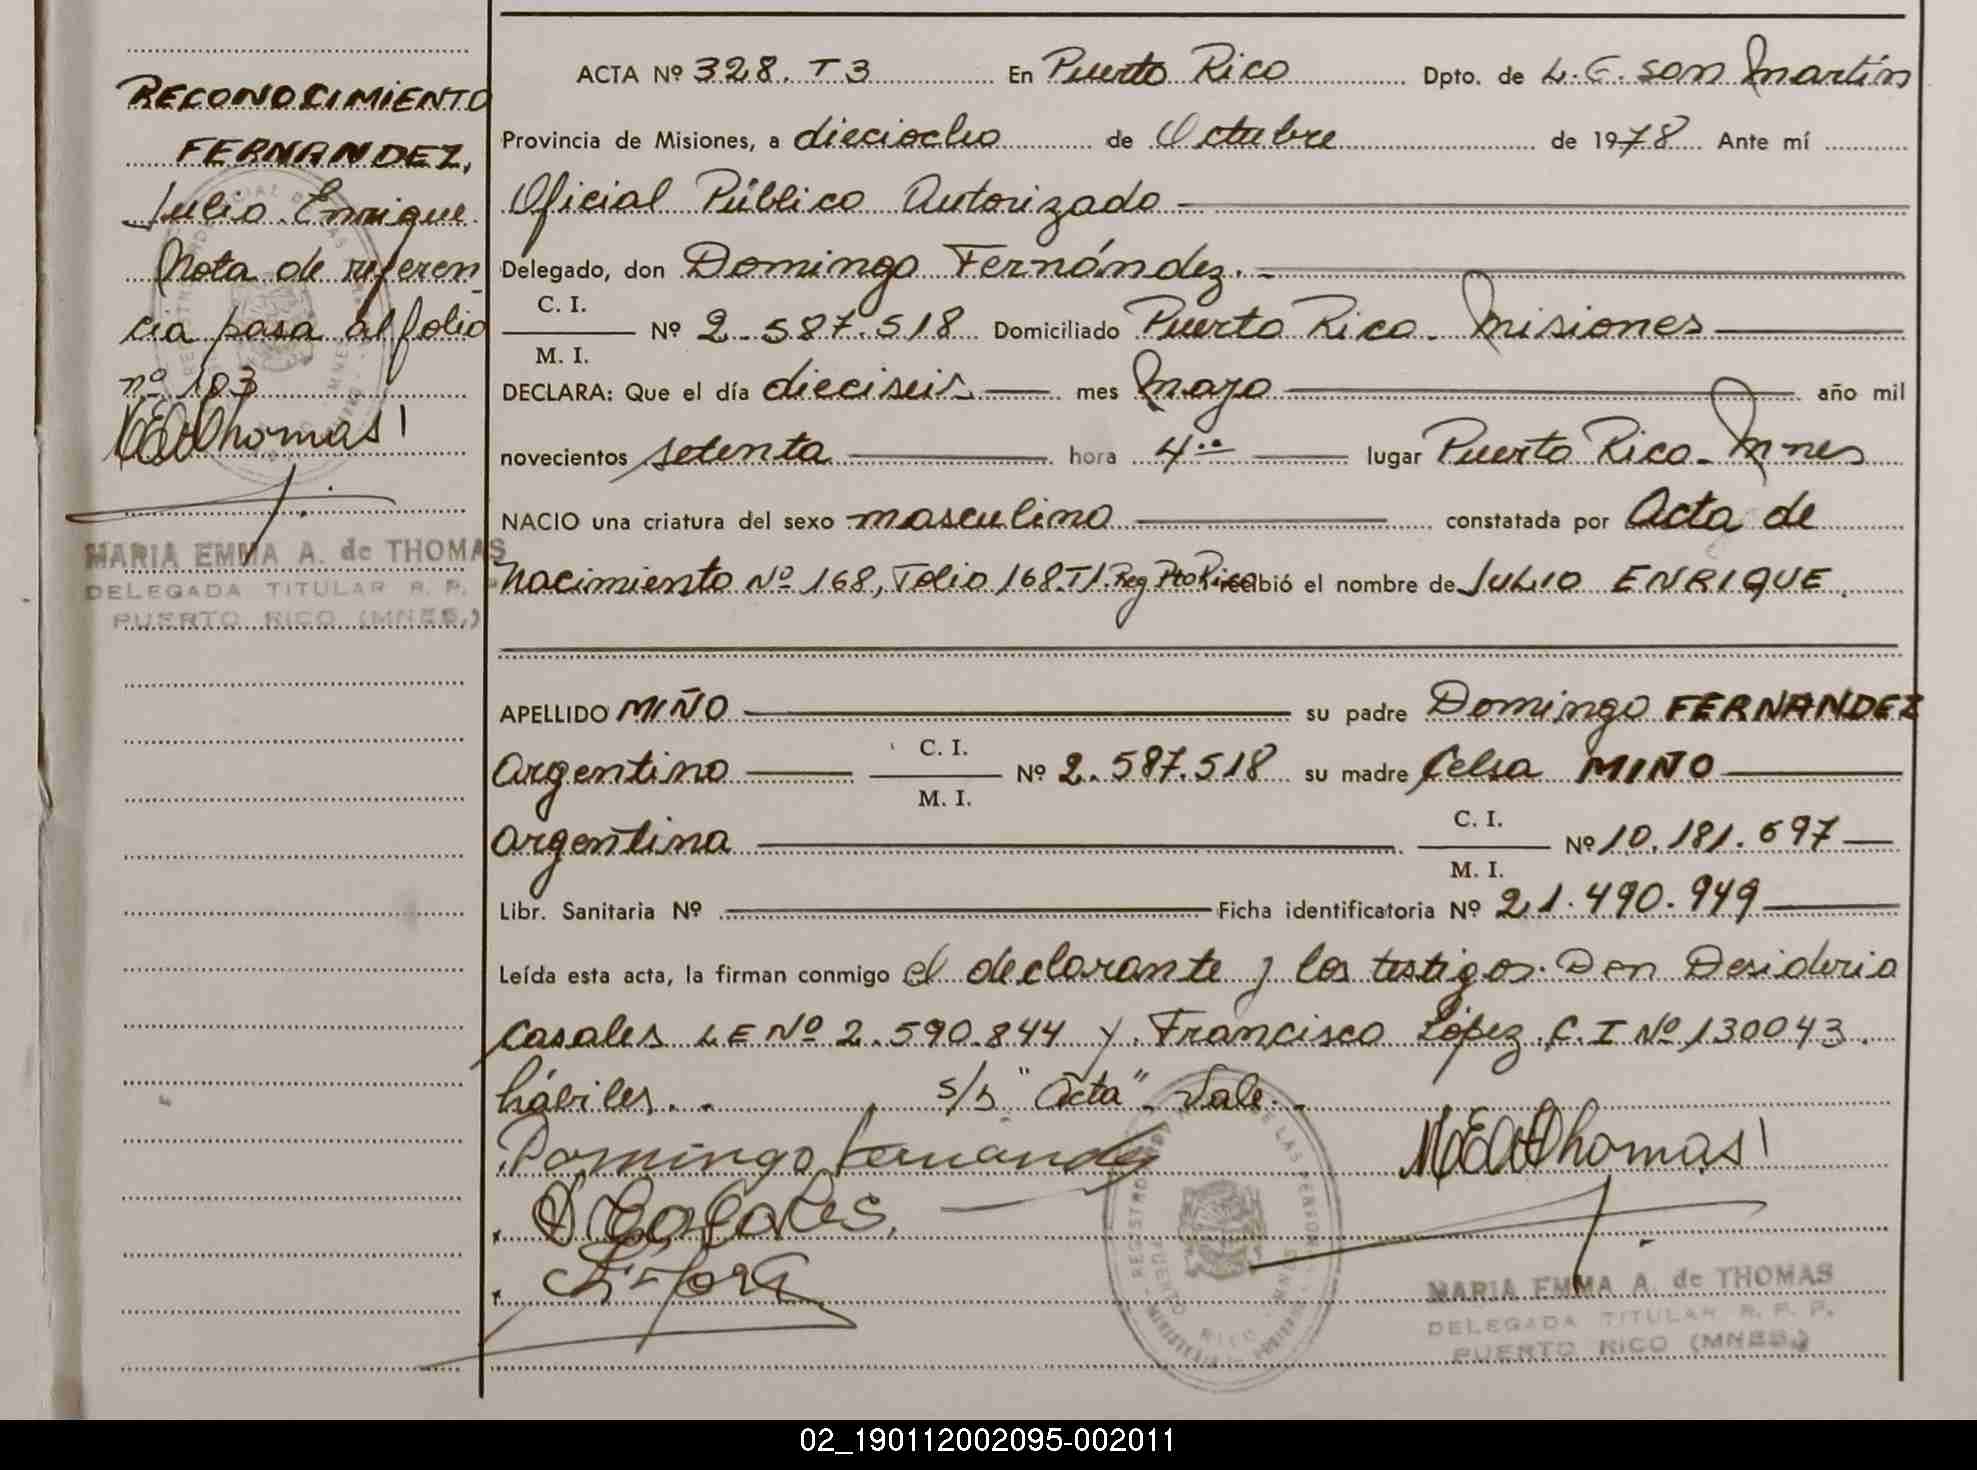 RECONOCIMIENTO
FERNANDEZ,
Julio Enrique
Nota de referen-
cia pasa al folio
nº 103
MEAThomas
MARIA EMMA A. de THOMAS
DELEGADA TITULAR R. P. P.
PUERTO RICO (MNES.)
ACTA Nº 328. T3 En Puerto Rico Dpto. de L. G. San Martín
Provincia de Misiones, a dieciocho de Octubre de 1978 Ante mí
Oficial Público Autorizado
Delegado, don Domingo Fernández.
C. I.
M. I. Nº 2.587.518 Domiciliado Puerto Rico - Misiones
DECLARA: Que el día dieciseis mes Mayo año mil
novecientos setenta hora 4.. lugar Puerto Rico - Mnes
NACIO una criatura del sexo masculino constatada por Acta de
Nacimiento Nº 168, Folio 168.T1.Reg Pto Rico recibió el nombre de JULIO ENRIQUE.
APELLIDO MIÑO su padre Domingo FERNANDEZ
Argentino C. I.
M. I. Nº 2.587.518 su madre Celsa MIÑO
argentina C. I.
M. I. Nº 10.181.697
Libr. Sanitaria Nº Ficha identificatoria Nº 21.490.949
Leída esta acta, la firman conmigo el declarante y los testigos. Don Desiderio
Casales LE Nº 2.590.844 y Francisco López. C.I Nº 130043.
hábiles. s/s "Acta" Vale.
Domingo Fernandez
MEAThomas
D Casales.
MARIA EMMA A. de THOMAS
DELEGADA TITULAR R. P. P.
PUERTO RICO (MNES.)
02_190112002095-002011